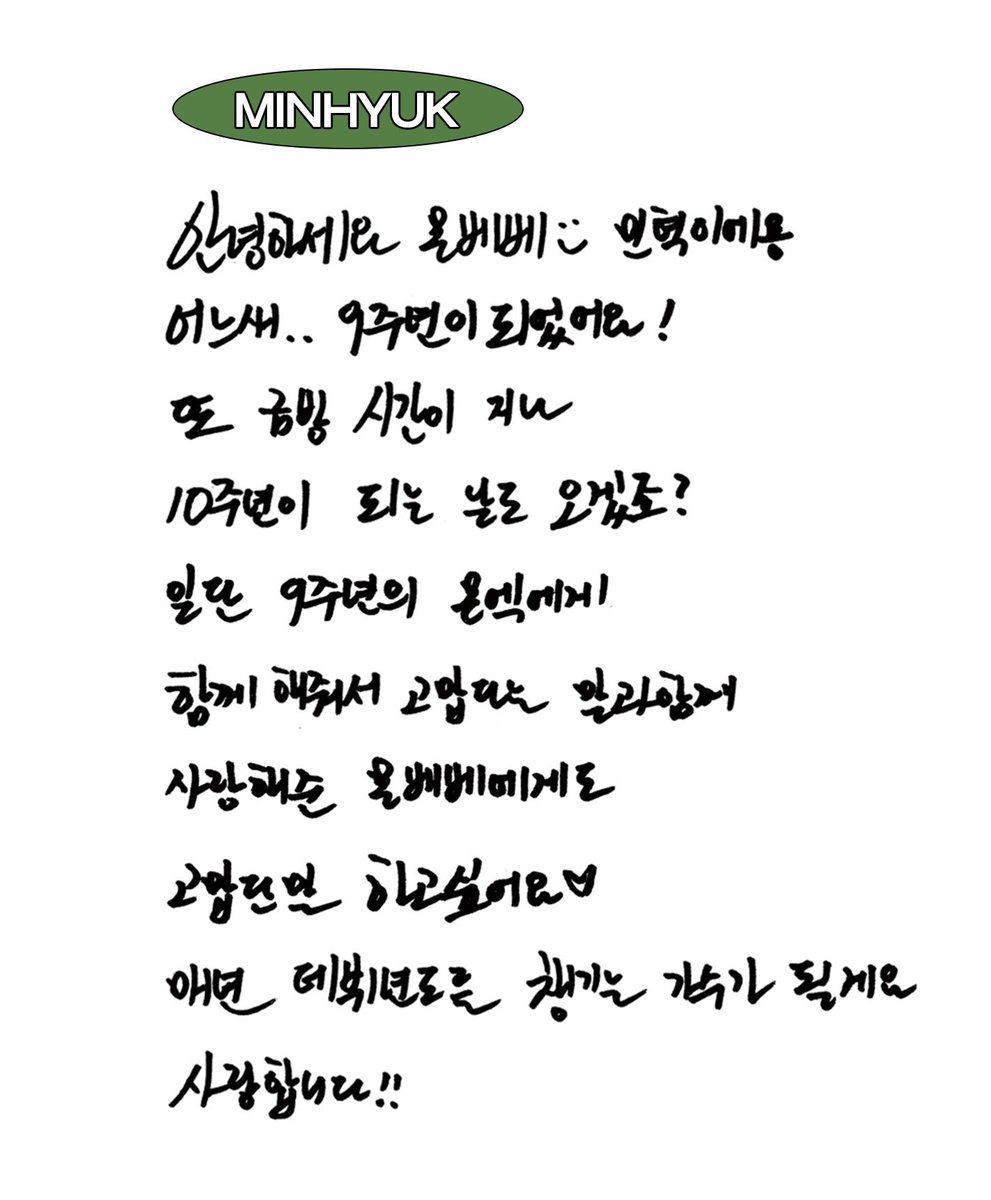 MINHYUK
안녕하세요 몬베베 :) 민혁이에용
어느새.. 9주년이 되었어요!
또 금방 시간이 지나
10주년이 되는 날도 오겠죠?
일단 9주년의 몬엑에게
함께 해줘서 고맙다는 말과 함께
사랑해준 몬베베에게도
고맙단 말 하고싶어요♡
매년 데뷔년도를 챙기는 가수가 될게요
사랑합니다!!